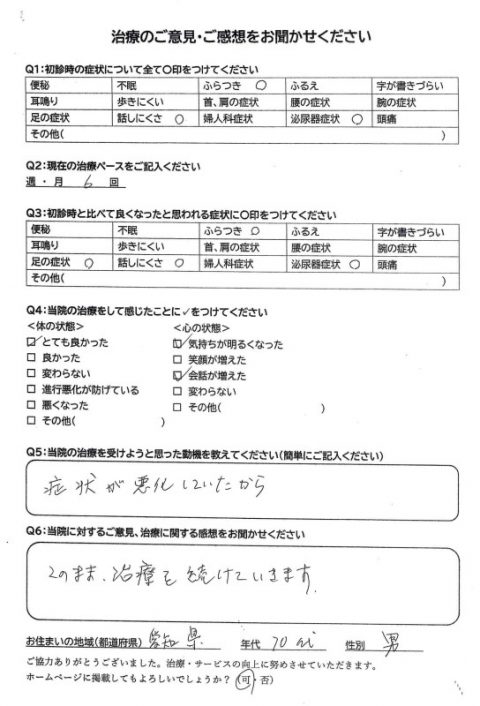 治療のご意見・ご感想をお聞かせください
Q1:初診時の症状について全て〇印をつけてください
便秘 不眠 ふらつき ○ ふるえ 字が書きづらい
耳鳴り 歩きにくい 首、肩の症状 腰の症状 腕の症状
足の症状 話しにくさ ○ 婦人科症状 泌尿器症状 ○ 頭痛
その他( )
Q2:現在の治療ペースをご記入ください
週・月 6 回
Q3:初診時と比べて良くなったと思われる症状に〇印をつけてください
便秘 不眠 ふらつき ○ ふるえ 字が書きづらい
耳鳴り 歩きにくい 首、肩の症状 腰の症状 腕の症状
足の症状 ○ 話しにくさ ○ 婦人科症状 泌尿器症状 ○ 頭痛
その他( )
Q4:当院の治療をして感じたことに✓をつけてください
<体の状態> <心の状態>
☑ とても良かった ☑ 気持ちが明るくなった
□ 良かった □ 笑顔が増えた
□ 変わらない ☑ 会話が増えた
□ 進行悪化が防げている □ 変わらない
□ 悪くなった □ その他( )
□ その他( )
Q5:当院の治療を受けようと思った動機を教えてください(簡単にご記入ください)
症状が悪化していたから
Q6:当院に対するご意見、治療に関する感想をお聞かせください
このまま、治療を続けていきます。
お住まいの地域(都道府県) 愛知県 年代 70代 性別 男
ご協力ありがとうございました。治療・サービスの向上に努めさせていただきます。
ホームページに掲載してもよろしいでしょうか？(可・否)